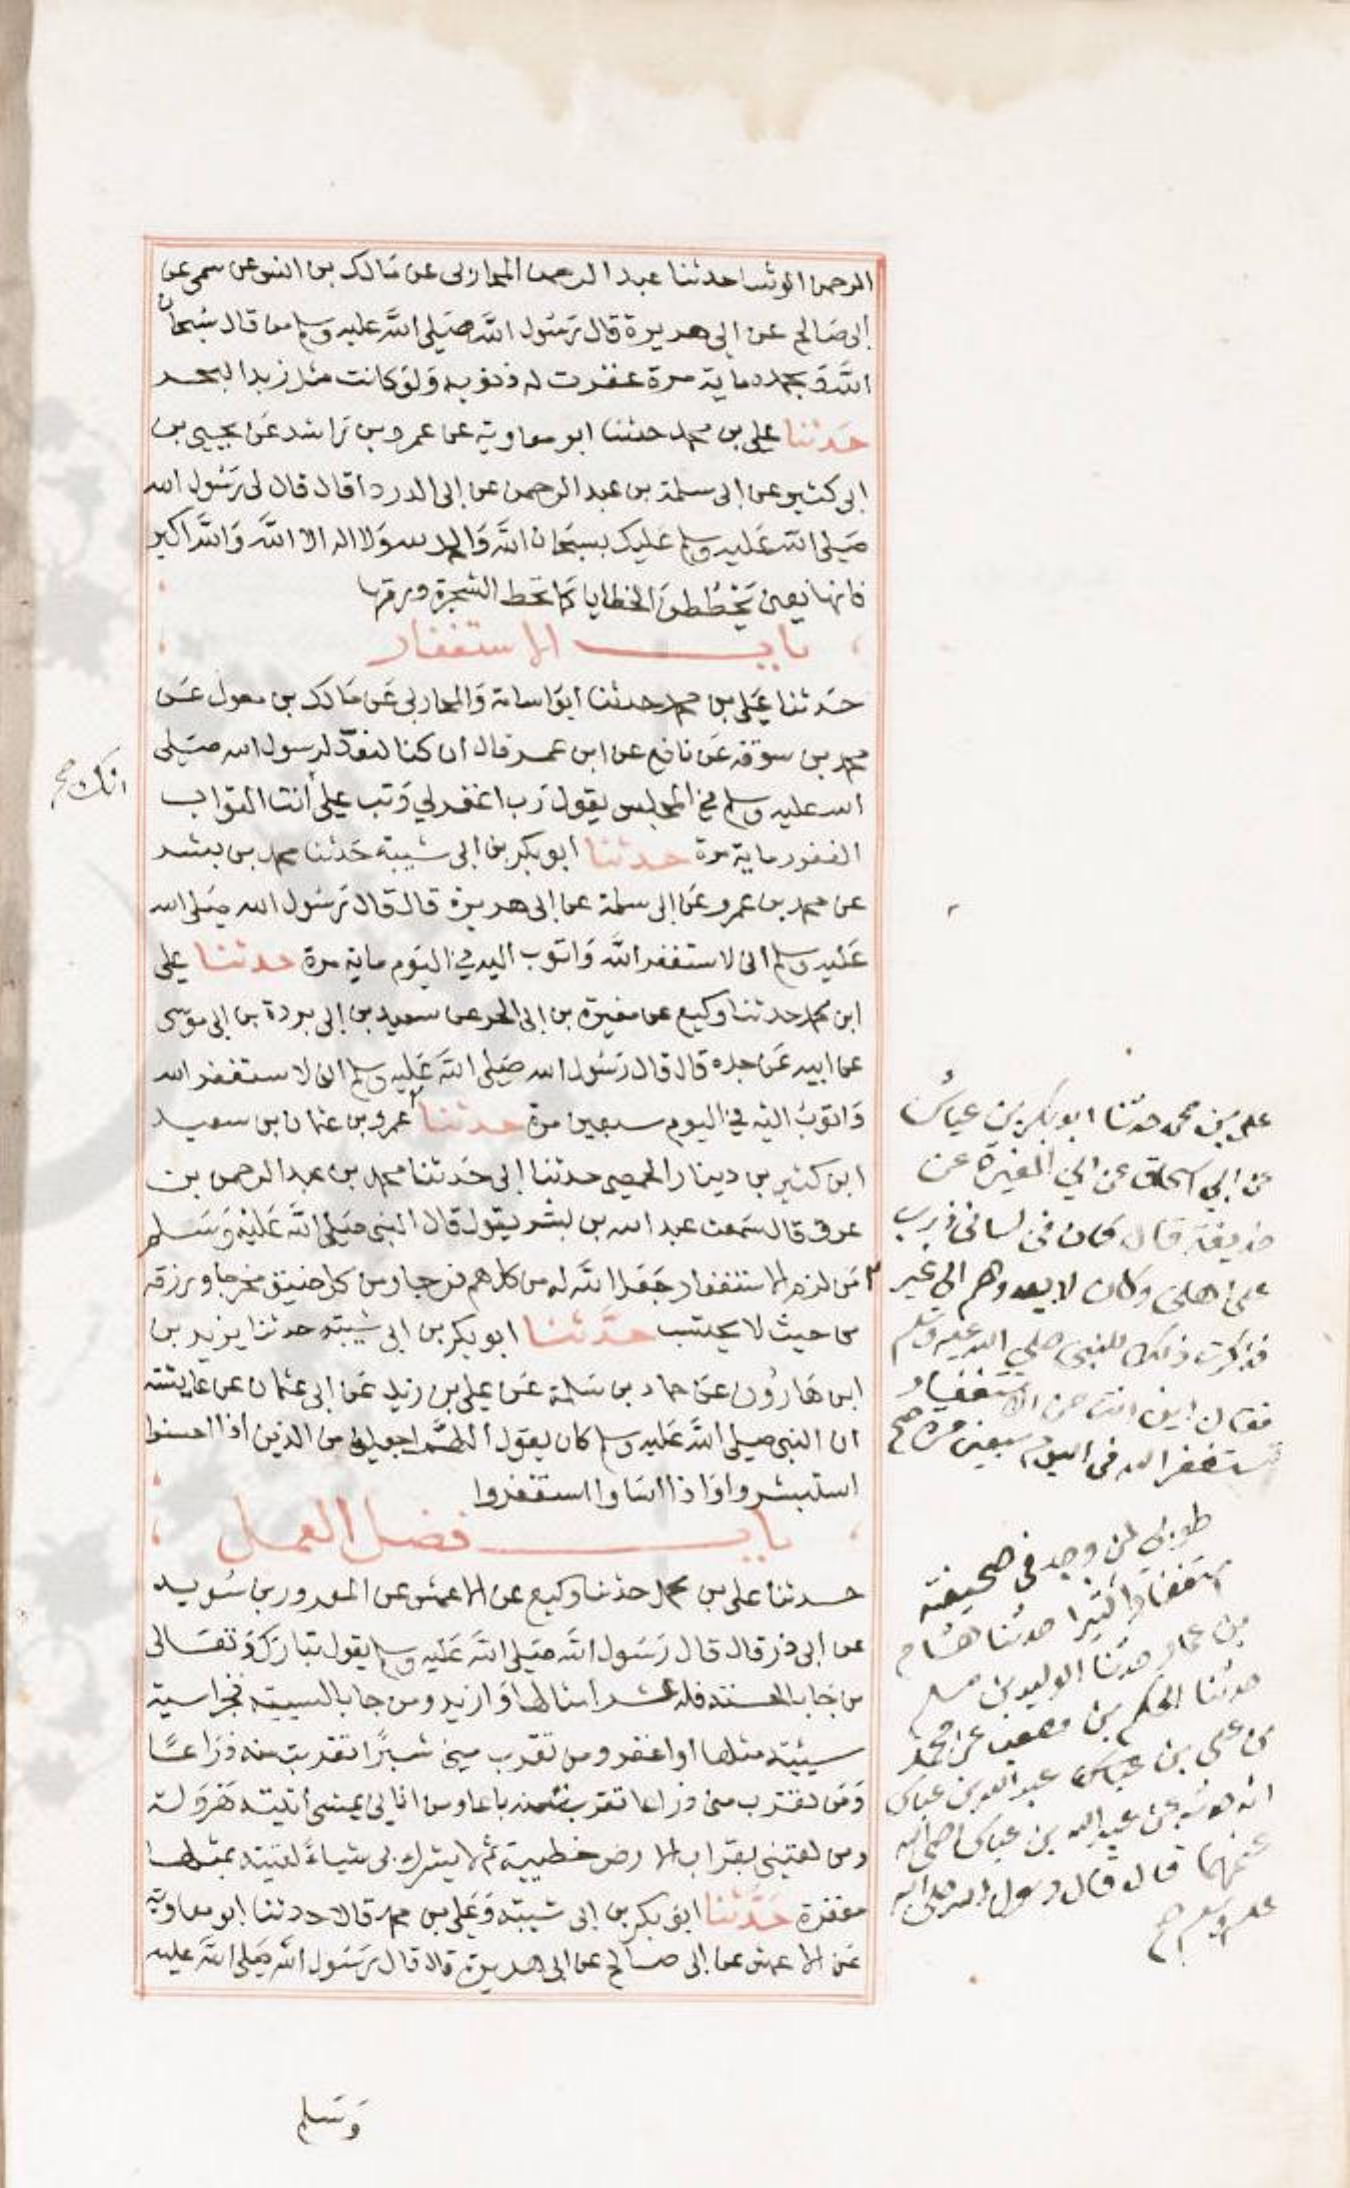 الرحمن الوشا حدثنا عبد الرحمن المحاربى عن مالك بن انس عن سمى عن
ابى صالح عن ابى هريرة قال رسول الله صلى الله عليه وسلم من قال سبحان
الله وبحمده ماية مرة غفرت له ذنوبه ولو كانت مثل زبد البحر
حدثنا على بن محمد حدثنا ابو معاوية عن عمر وبن راشد عن يحيى بن
ابى كثير عن ابى سلمة بن عبد الرحمن عن ابى الدردا قال قال لى رسول الله
صلى الله عليه وسلم عليك بسبحان الله والحمد لله ولا اله الا الله والله اكبر
فانها يعنى يحططن الخطايا كما تحط الشجرة ورقها
باب الاستغفار
حدثنا على بن محمد حدثنا ابو اسامة والمحاربى عن مالك بن مغول عن
محمد بن سوقة عن نافع عن ابن عمر قال ان كنا لنعد لرسول الله صلى
الله عليه وسلم في المجلس يقول رب اغفر لي وتب علي أنت التواب
انك صح
الغفور ماية مرة حدثنا ابو بكر بن ابى شيبة حدثنا محمد بن بشر
عن محمد بن عمرو عن ابى سلمة عن ابى هريرة قال قال رسول الله صلى الله
عليه وسلم انى لاستغفر الله واتوب اليه في اليوم ماية مرة حدثنا على
ابن محمد حدثنا وكيع عن مغيرة بن ابى الحر عن سعيد بن ابى بردة بن ابى موسى
عن ابيه عن جده قال قال رسول الله صلى الله عليه وسلم انى لاستغفر الله
واتوب اليه في اليوم سبعين مرة حدثنا عمرو بن عثمان بن سعيد
ابن كثير بن دينار الحمصى حدثنا ابى حدثنا محمد بن عبد الرحمن بن
عرق قال سمعت عبد الله بن بشر يقول قال النبى صلى الله عليه وسلم
من لزم الاستغفار جعل الله له من كل هم فرجا ومن كل ضيق مخرجا ويرزقه
من حيث لا يحتسب حدثنا ابو بكر بن ابى شيبة حدثنا يزيد بن
ابن هارون عن حماد بن سلمة عن على بن زيد عن ابى عثمان عن عايشة
ان النبى صلى الله عليه وسلم كان يقول اللهم اجعلنى من الذين اذا احسنوا
استبشروا واذا اساوا استغفروا
باب فضل العمل
حدثنا على بن محمد حدثنا وكيع عن الاعمش عن المعرور بن سويد
عن ابى ذر قال قال رسول الله صلى الله عليه وسلم يقول تبارك وتعالى
من جا بالحسنة فله عشر امثالها وازيد ومن جا بالسيية فجزا سية
سيئة مثلها او اغفر ومن تقرب مني شبرًا تقربت منه ذراعًا
ومن تقرب منى ذراعا تقربت منه باعا ومن اتاني يمشى اتيته هرولة
ومن لقينى بقراب الارض خطيية ثم لا يشرك بى شيأً لقيته بمثلها
مغفرة حدثنا ابو بكر بن ابى شيبة وعلى بن محمد قالا حدثنا ابو معاوية
عن الاعمش عن ابى صالح عن ابى هريرة قال قال رسول الله صلى الله عليه
وسلم
على بن محمد حدثنا ابو بكر بن عياش
عن ابي اسحاق عن ابي المغيرة عن
حذيفة قال كان فى لسانى ذرب
على اهلى وكان لا يعدوهم الى غير
فذكرت ذلك للنبى صلى الله عليه وسلم
فقال اين انت من الاستغفار
تستغفر الله فى اليوم سبعين مرة صح
طوبى لمن وجد فى صحيفته
استغفارا كثيرا حدثنا هشام
بن عمار حدثنا الوليد بن مسلم
حدثنا الحكم بن مصعب عن محمد
بن على بن عباس عبد الله بن عباس
انه حدثه عن عبد الله بن عباس رضى الله
عنهما قال قال رسول الله صلى الله
عليه وسلم صح